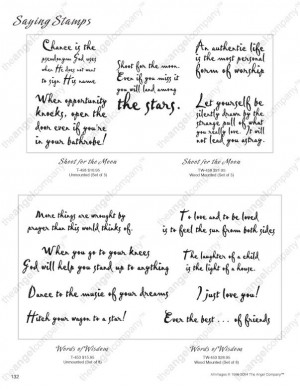 Saying Stamps
Chance is the
pseudonym God uses
when He does not want
to sign His name.
When opportunity
knocks, open the
door even if you're
in your bathrobe!
Shoot for the moon.
Even if you miss it
you will land among
the stars.
An authentic life
is the most personal
form of worship
Let yourself be
silently drawn by the
strange pull of what
you really love. It will
not lead you astray.
Shoot for the Moon
Unmounted (Set of 5)
Shoot for the Moon
Wood Mounted (Set of 5)
More things are wrought by
prayer than this world thinks of.
When you go to your knees
God will help you stand up to anything
Dance to the music of your dreams
Hitch your wagon to a star!
To love and to be loved
is to feel the sun from both sides
The laughter of a child
is the light of a house.
I just love you!
Ever the best ... of friends
Words of Wisdom
Unmounted (Set of 8)
Words of Wisdom
Wood Mounted (Set of 8)
132
The Angel Company™